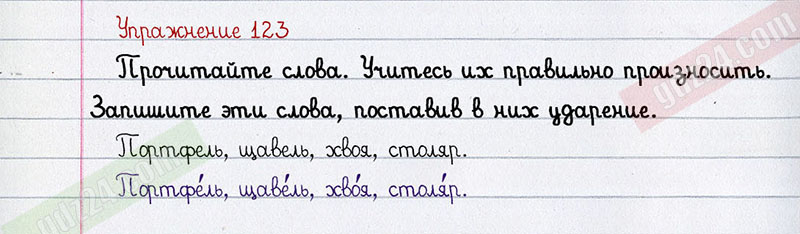 Упражнение 123
Прочитайте слова. Учитесь их правильно произносить.
Запишите эти слова, поставив в них ударение.
Портфель, щавель, хвоя, столяр.
Портфе́ль, щаве́ль, хво́я, столя́р.
gdz24.com
gdz24.com